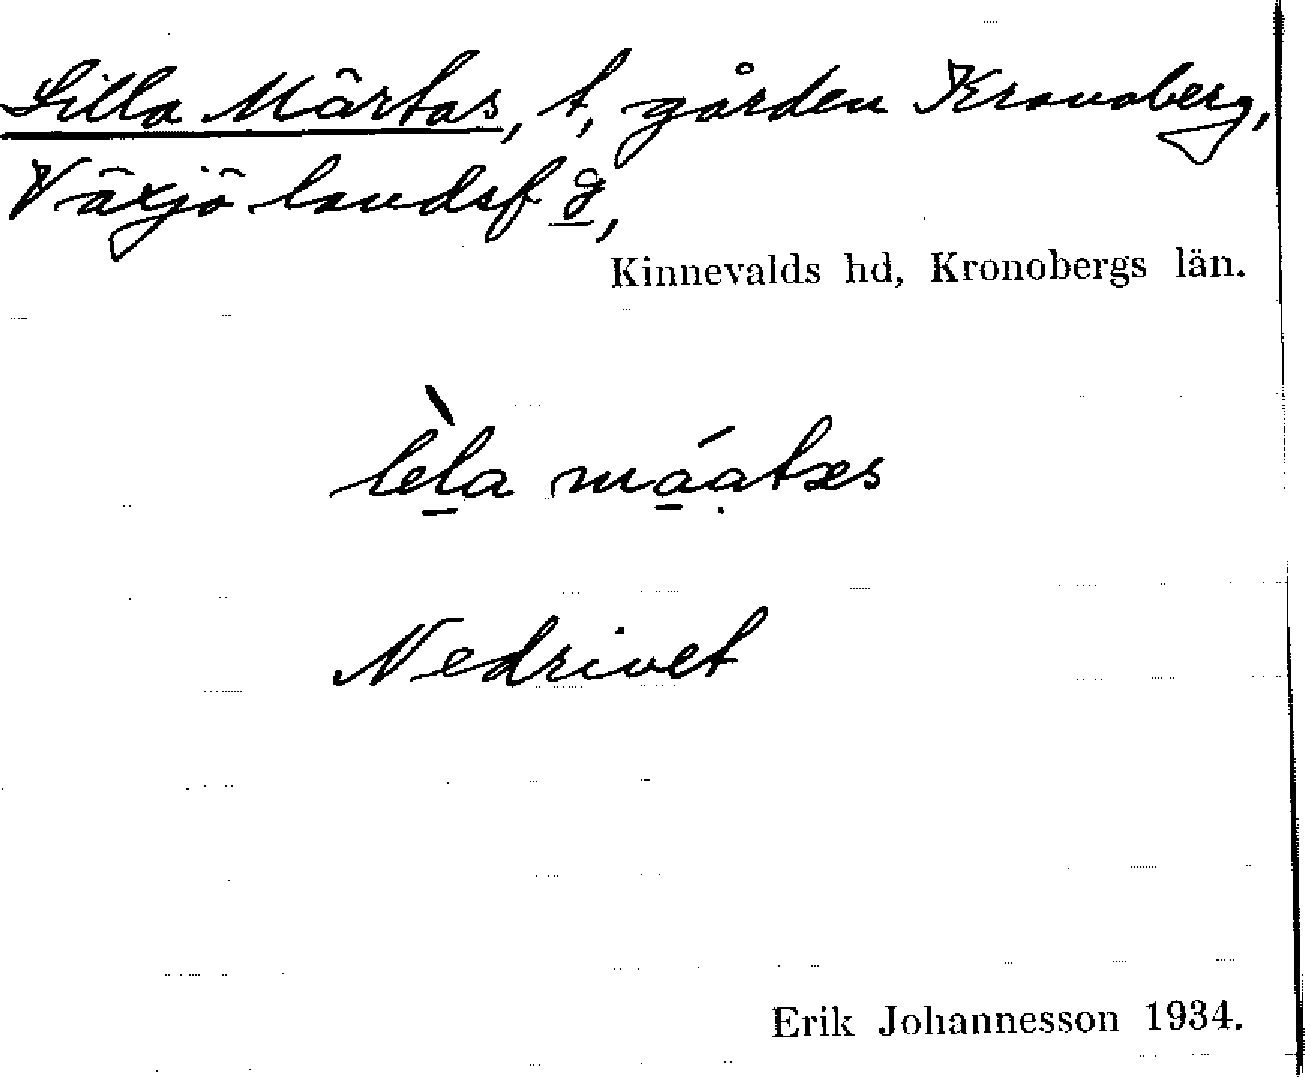 Lilla Märtas, t, gården Kronoberg,
Växjö landsf d,
Kinnevalds hd, Kronobergs län.
lela máatæs
Nedrivet
Erik Johannesson 1934.